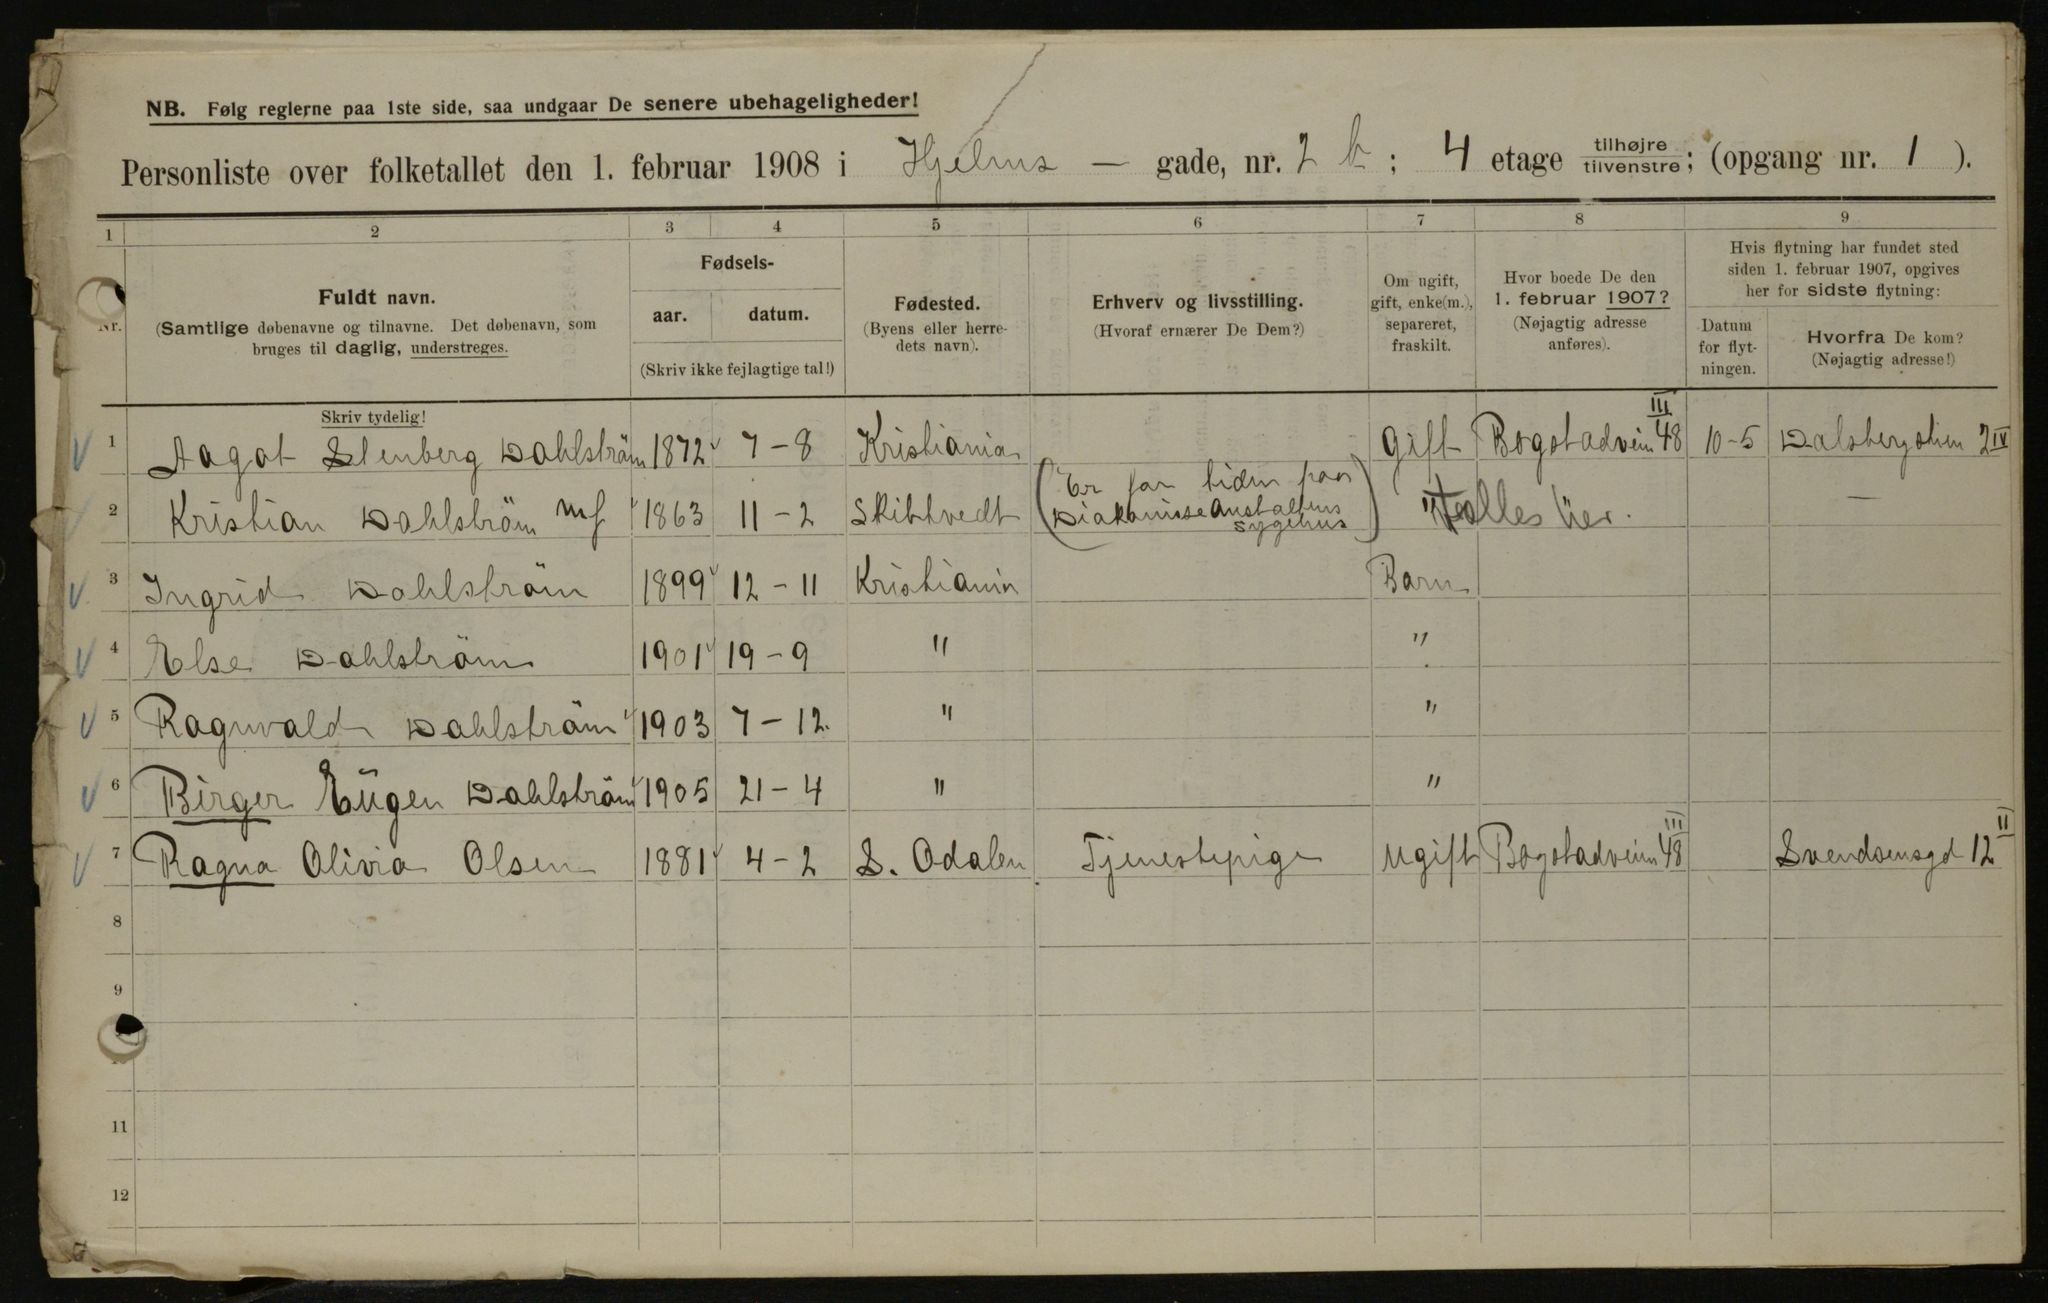 NB. Følg reglerne paa 1ste side, saa undgaar De senere ubehageligheder!
Personliste over folketallet den 1. februar 1908 i Hjelms — gade, nr. 2 b ; 4 etage tilhøjre tilvenstre ; (opgang nr. 1 ).
1 2 3 4 5 6 7 8 9
Nr.
Fuldt navn.
(Samtlige døbenavne og tilnavne. Det døbenavn, som
bruges til daglig, understreges.
Skriv tydelig!
Fødsels-
aar. datum.
(Skriv ikke fejlagtige tal!)
Fødested.
(Byens eller herre-
dets navn).
Erhverv og livsstilling.
(Hvoraf ernærer De Dem?)
Om ugift,
gift, enke(m.),
separeret,
fraskilt.
Hvor boede De den
1. februar 1907?
(Nøjagtig adresse
anføres).
Hvis flytning har fundet sted
siden 1. februar 1907, opgives
her for sidste flytning:
Datum
for flyt-
ningen.
Hvorfra De kom?
(Nøjagtig adresse!)
1 Aagot Stenberg Dahlström 1872 7-8 Kristiania Gift Bogstadvein 48 III 10-5 Dalsbergstien 2 IV
2 Kristian Dahlström mf 1863 11-2 Skibtvedt (Er for tiden paa
Diakonisseanstaltens
sygehus) " Tælles her. —
3 Ingrid Dahlström 1899 12-11 Kristiania Barn
4 Else Dahlström 1901 19-9 " "
5 Ragnvald Dahlström 1903 7-12. " "
6 Birger Eugen Dahlström 1905 21-4 " "
7 Ragna Olivia Olsen 1881 4-2 S. Odalen Tjenestepige Ugift Bogstadveien 48 III Svendsensgd 12 II
8
9
11
12